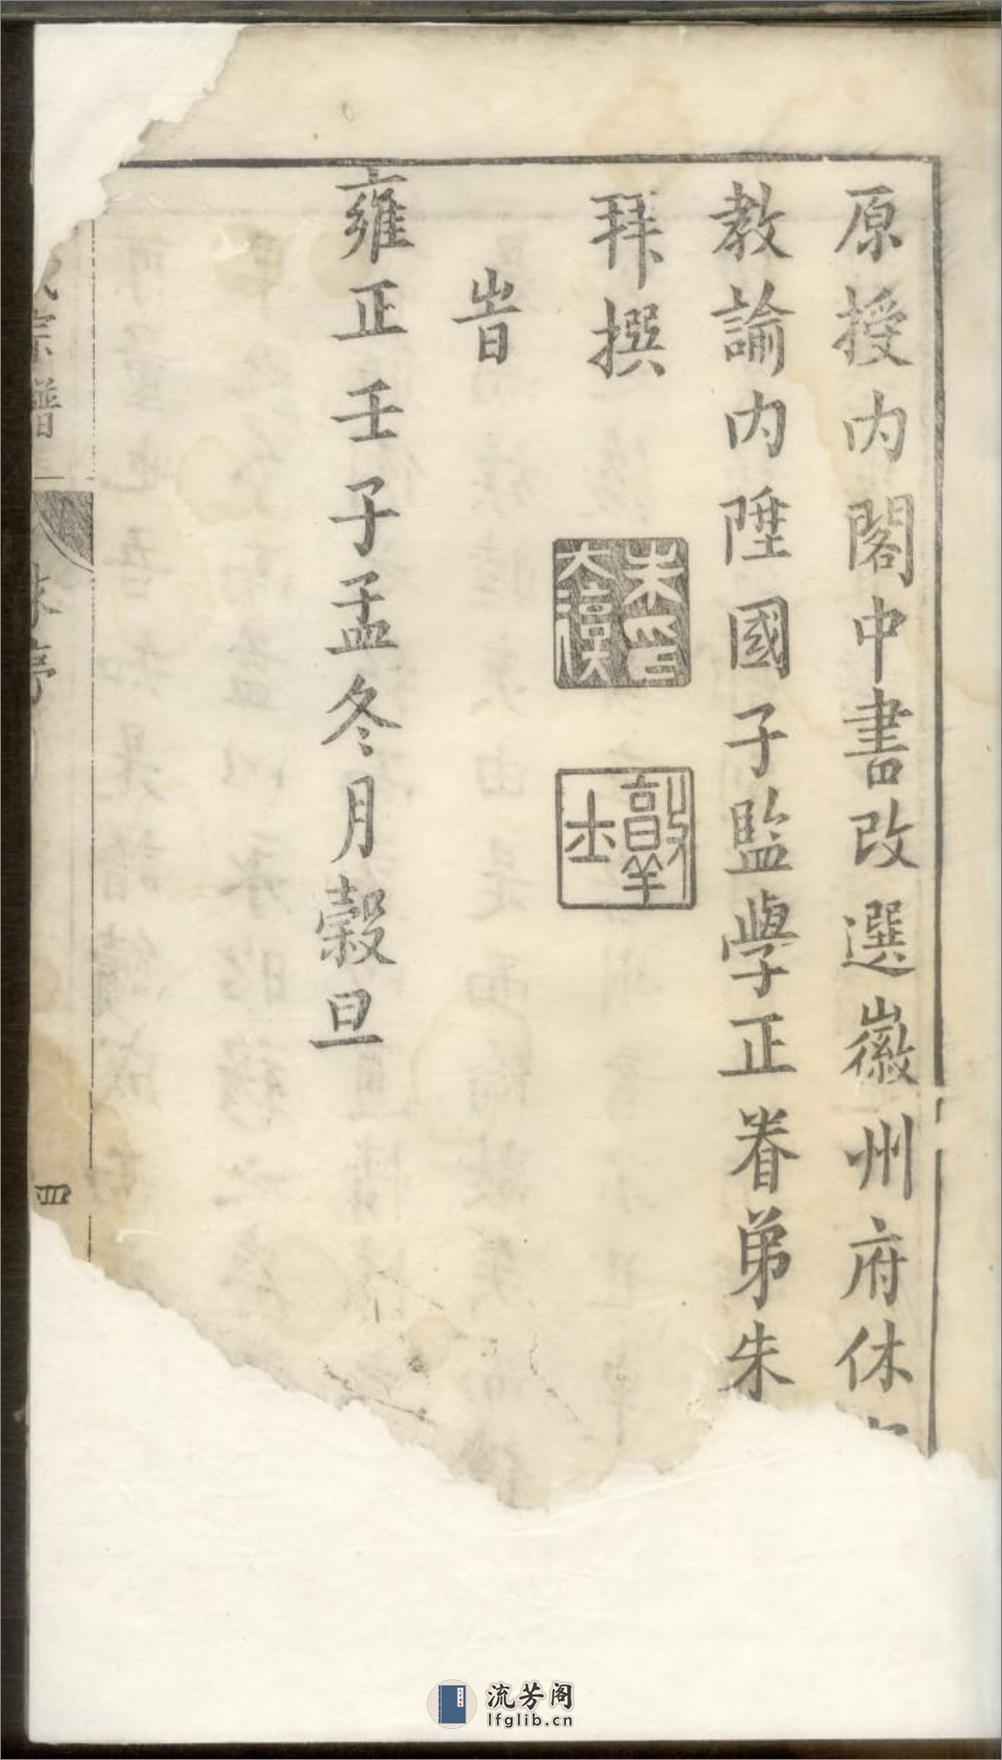 原授内閣中書改選徽州府休
教諭内陞國子監學正眷弟朱
拜撰
朱印大漠
旹
雍正壬子孟冬月穀旦
宗譜
四
流芳阁
lfglib.cn